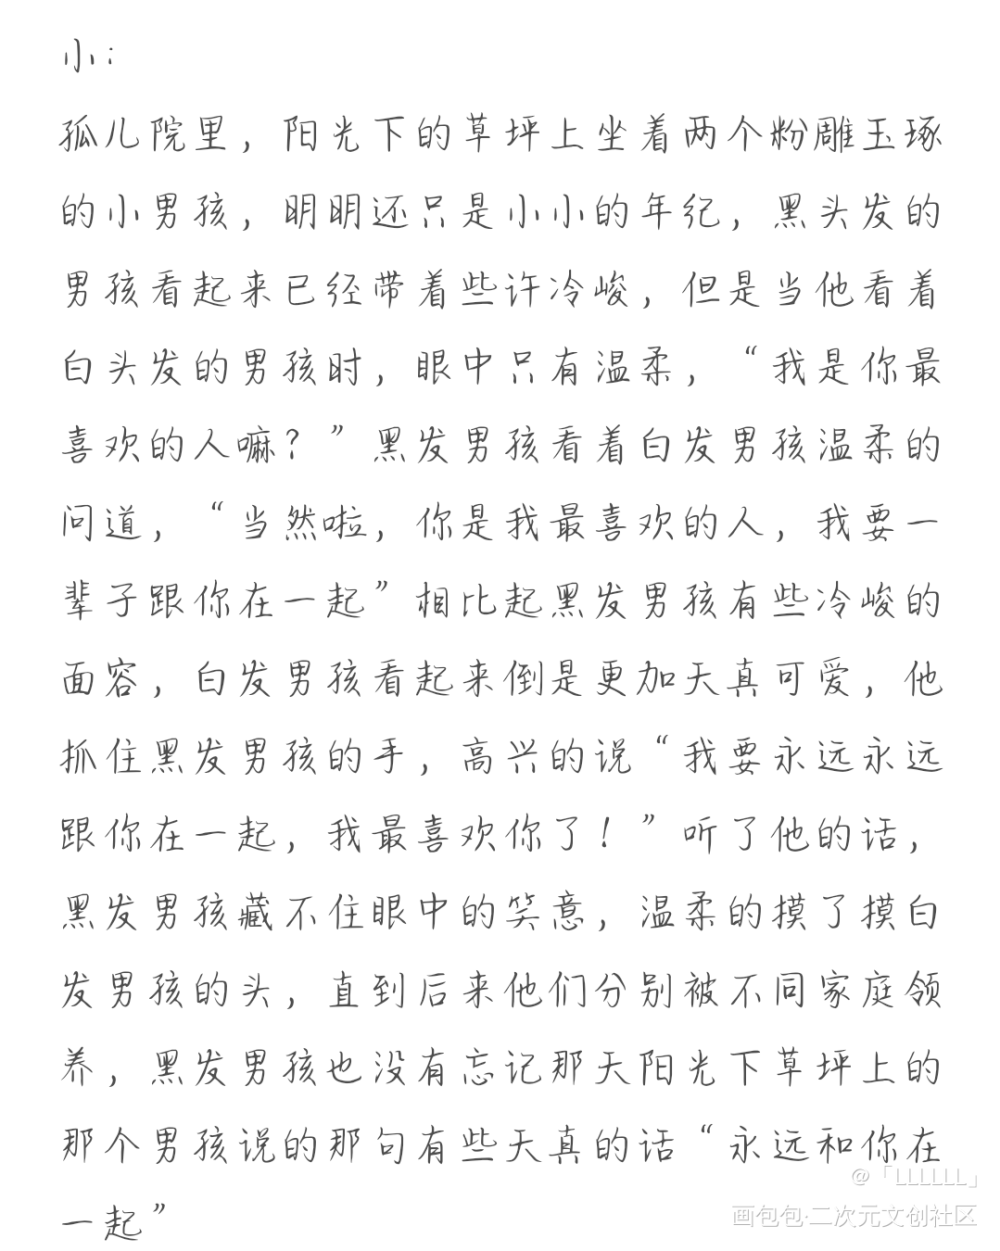 小：
孤儿院里，阳光下的草坪上坐着两个粉雕玉琢
的小男孩，明明还只是小小的年纪，黑头发的
男孩看起来已经带着些许冷峻，但是当他看着
白头发的男孩时，眼中只有温柔，“我是你最
喜欢的人嘛？”黑发男孩看着白发男孩温柔的
问道，“当然啦，你是我最喜欢的人，我要一
辈子跟你在一起”相比起黑发男孩有些冷峻的
面容，白发男孩看起来倒是更加天真可爱，他
抓住黑发男孩的手，高兴的说“我要永远永远
跟你在一起，我最喜欢你了！”听了他的话，
黑发男孩藏不住眼中的笑意，温柔的摸了摸白
发男孩的头，直到后来他们分别被不同家庭领
养，黑发男孩也没有忘记那天阳光下草坪上的
那个男孩说的那句有些天真的话“永远和你在
一起”
@「LLLLLL」
画包包·二次元文创社区